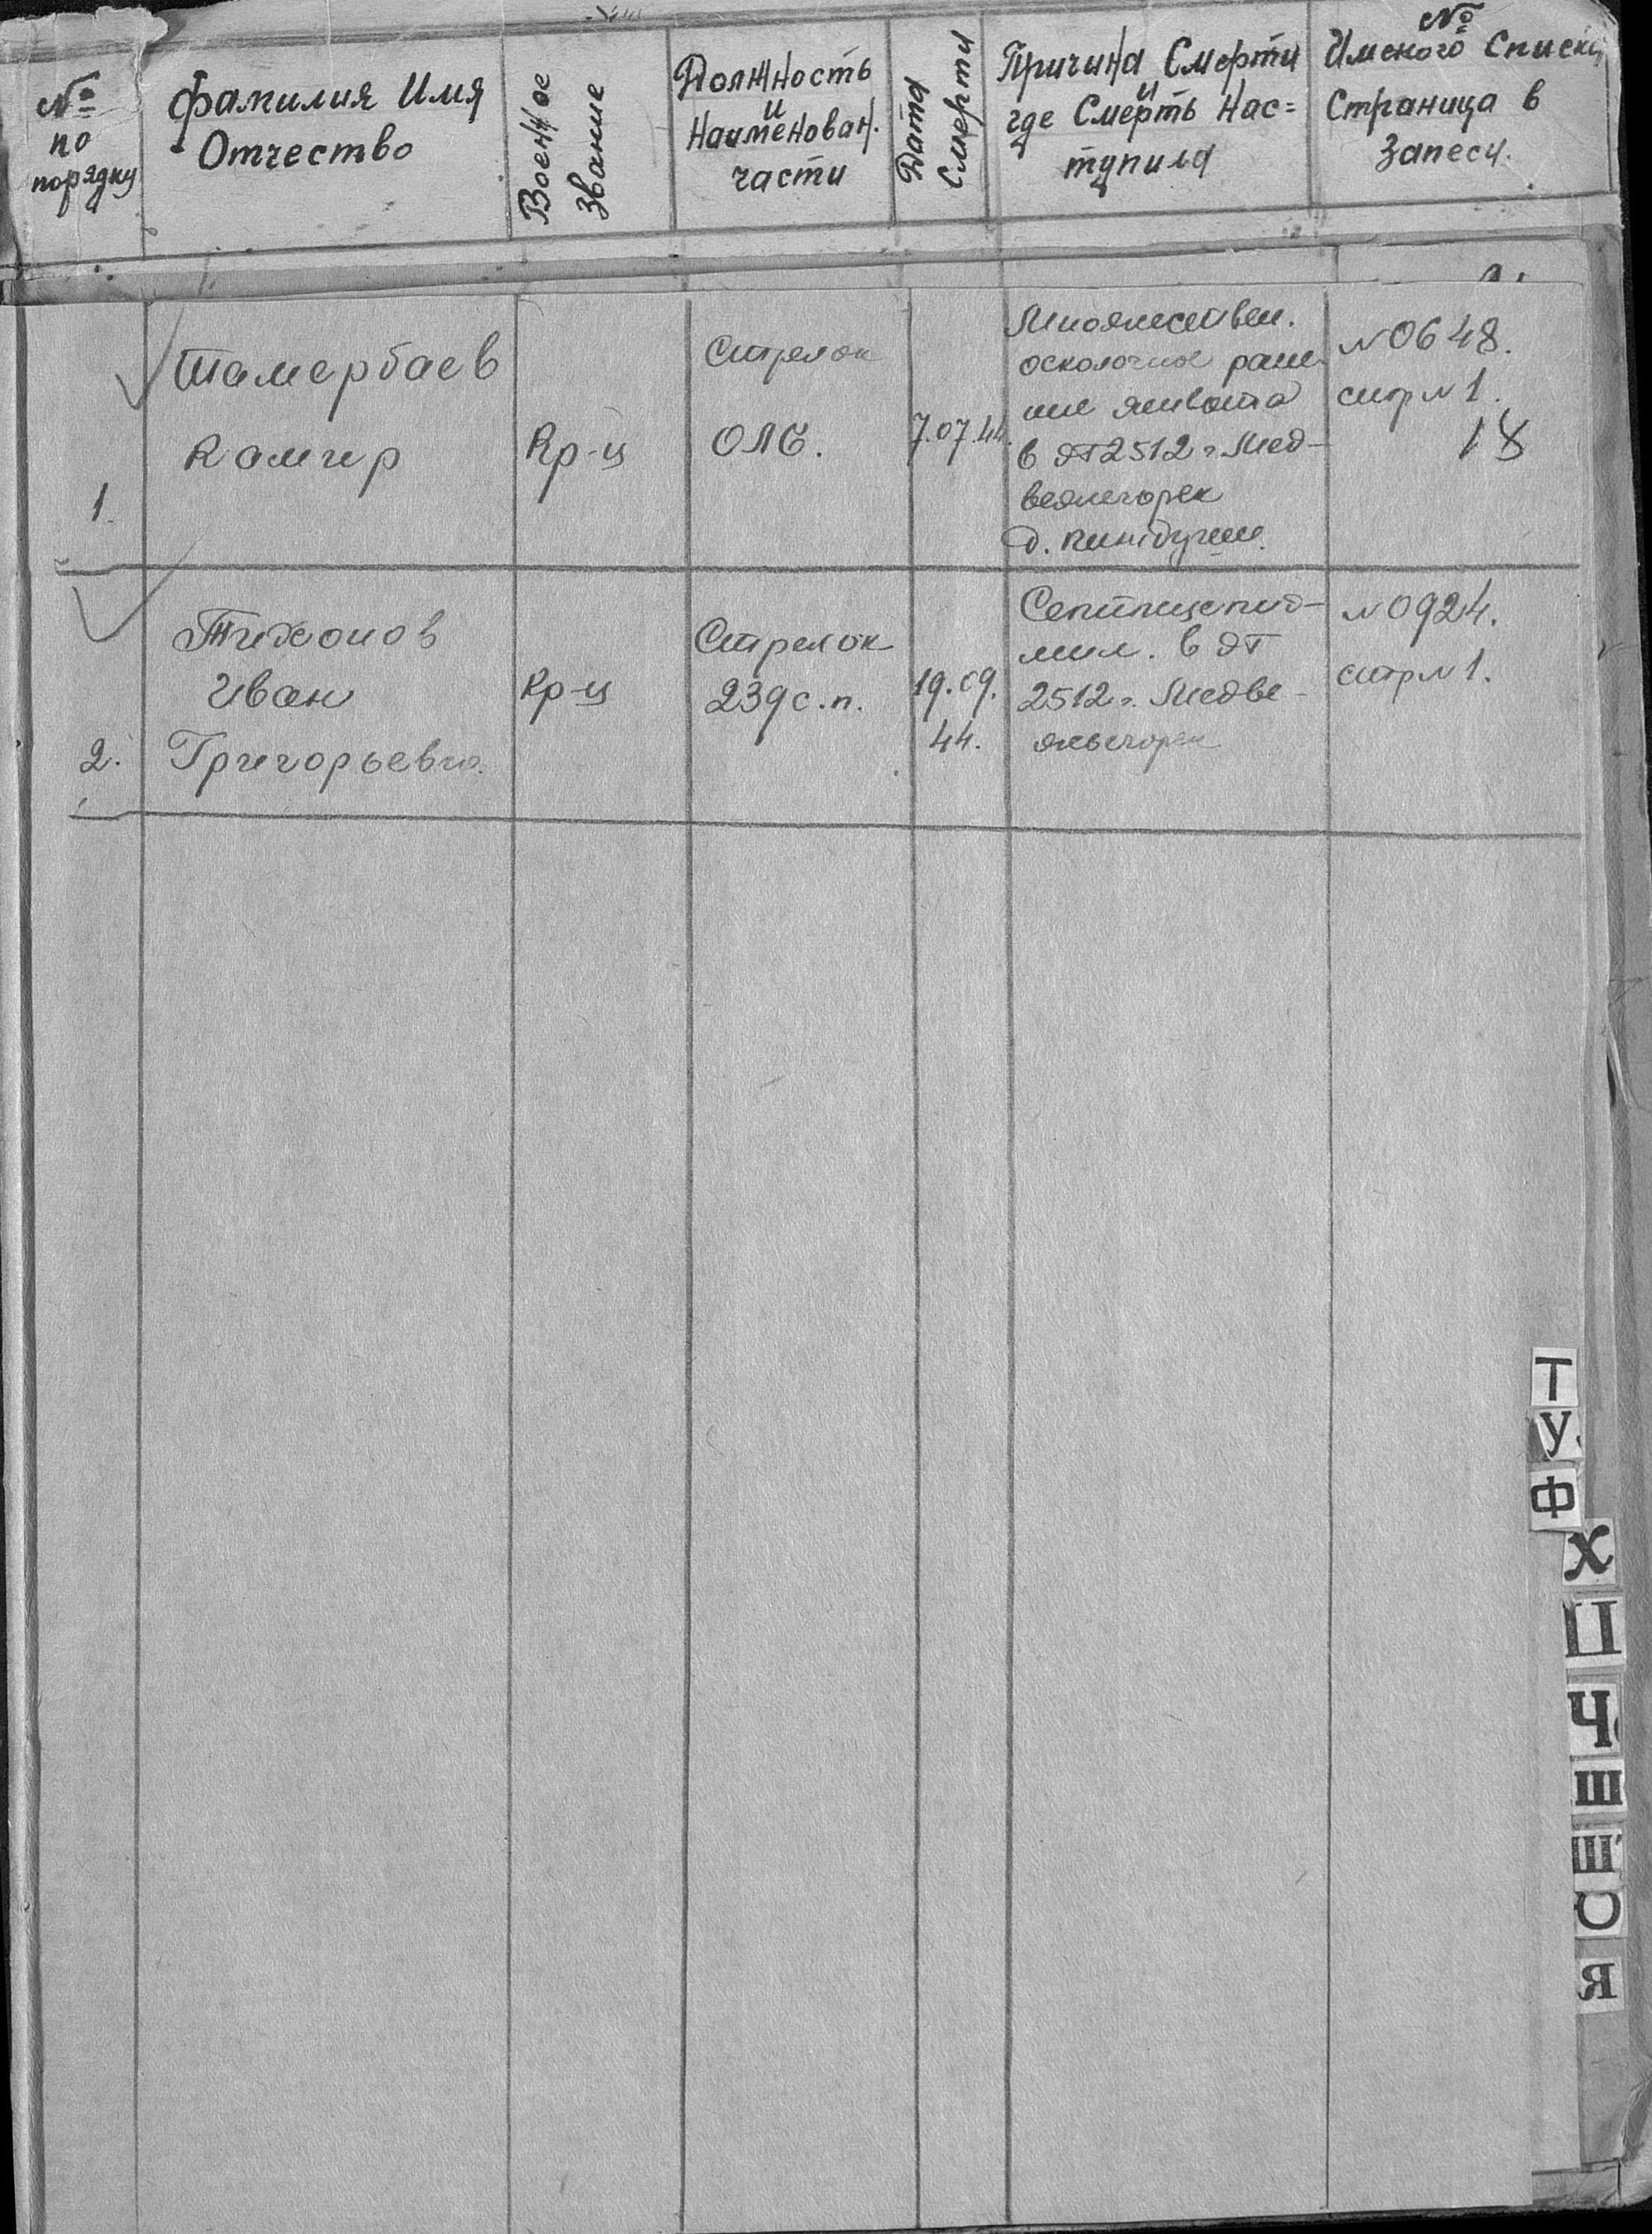 №
по
порядку
Фамилия Имя
Отчество
Военное
Звание
Должность
и
Наименован.
части
Дата
Смерти
Причина Смерти
и
где Смерть Нас=
тупила
№
Имского Списка
Страница в
Запеси.
1.
Тамербаев
Камир
Кр-ц
Стрелок
ОЛБ.
7.07.44.
Множествен.
осколочное ране
ние живота
в ЭГ 2512 г. Мед-
вежегорск
д. Пиндуши.
№ 0648.
стр № 1.
18
2.
Тихонов
Иван
Григорьевич.
Кр-ц
Стрелок
239 с.п.
19.09.
44.
в ЭГ
2512 г. Медве-
жьегорск
№ 0924.
стр № 1.
Т
У
Ф
Х
Ц
Ч
Ш
Щ
Я